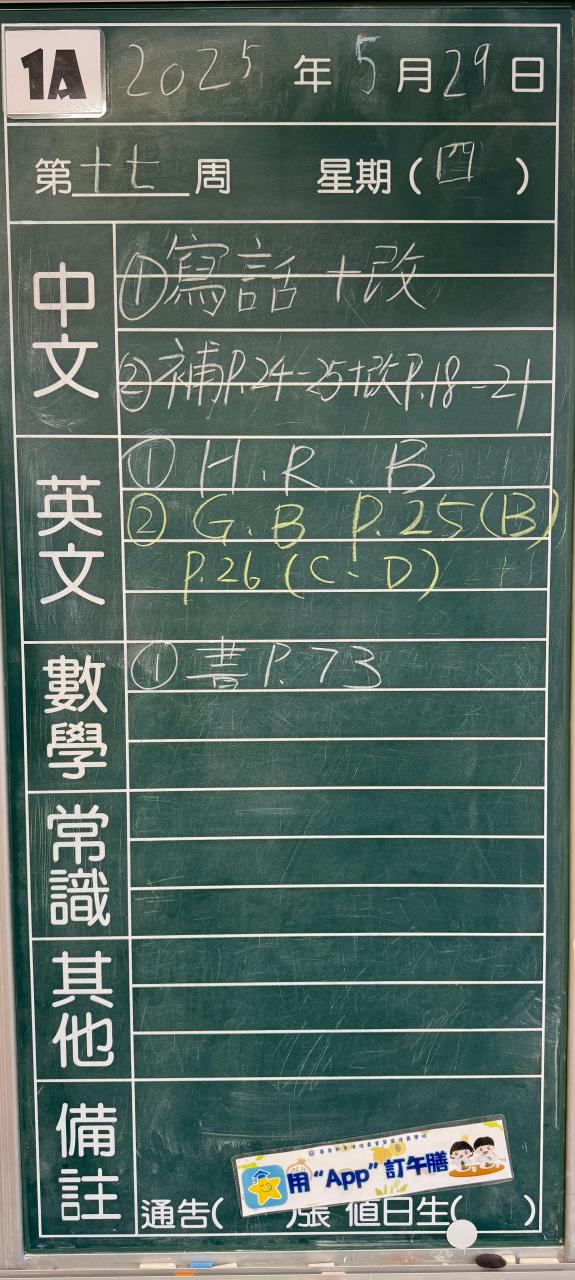 1A 2025 年 5 月 29 日
第十七周 星期(四)
中文
①寫話+改
②補P.24-25+改P.18-21
英文
① H.R.B
② G.B P.25(B)
P.26 (C-D)
數學
① 書P.73
常識
其他
備註
用“App”訂午膳
通告( )張 值日生( )